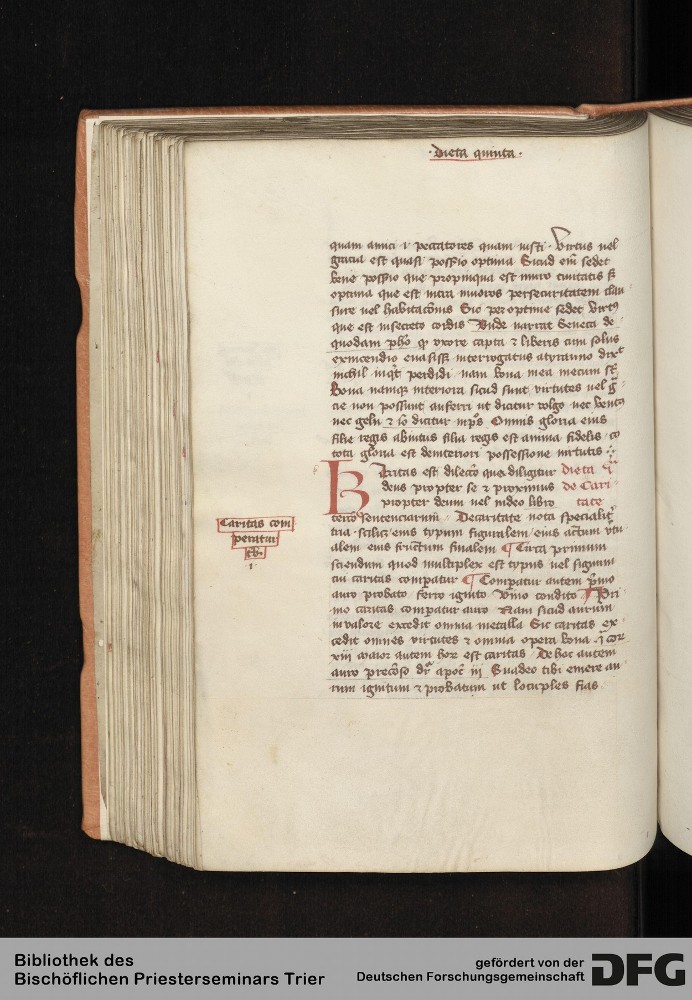 ·Dieta quinta·
quam amici i peccatores quam iusti · Virtus uel
gracia est quasi possio optima Sicud em̄ sedet
bene possio que propinqua est muro ciuitatis s̄
optima que est intra muros persecuritatem clau
sure uel habitacōnis Sic peroptime sedet virtꝰ
que est insecreto cordis Unde narrat Seneca de
quodam pħo qͥ uxore capta ⁊ liberis cum solus
exincendio euasiss interrogatus atyranno dixͭ
nichil inqͥt perdidi nam bona mea mecum st̄
Bona namqꝫ interiora sicud sunt virtutes uel gͬ
cie non possunt auferri ut dicitur uolgo nec
nec gelu ⁊ iō dicitur inpͣs Omnis gloria eius
filie regis abintus filia regis est anima fidelis co
tota gloria est deinteriori possessione uirtutis
Caritas est dilectō qua diligitur dieta
deus propter se ⁊ proximus de Cari
propter deum uel indeo libro tate
tercō sentenciarum · Decaritate nota specialitͬ
tria scilicꝫ eius typum figuralem eius actum vtu
alem eius fructum finalem ¶ Circa primum
sciendum quod multiplex est typus uel signum
cui caritas compatur ¶ Compatur autem pͥmo
auro probato ferro ignito Vino condito ¶ Pri
mo caritas compatur auro Nam sicud aurum
inualore excedit omnia metalla Sic caritas ex
cedit omnes virtutes ⁊ omnia opera bona cor
xiii maior autem hoꝝ est caritas · De hoc autem
auro precōso dͬ apoc̄ iij Suadeo tibi emere au
rum ignitum ⁊ probatum ut locuples fias
Caritas com
peratur
tͥbꝫ
·i·
Bibliothek des
Bischöflichen Priesterseminars Trier
gefördert von der
Deutschen Forschungsgemeinschaft
DFG